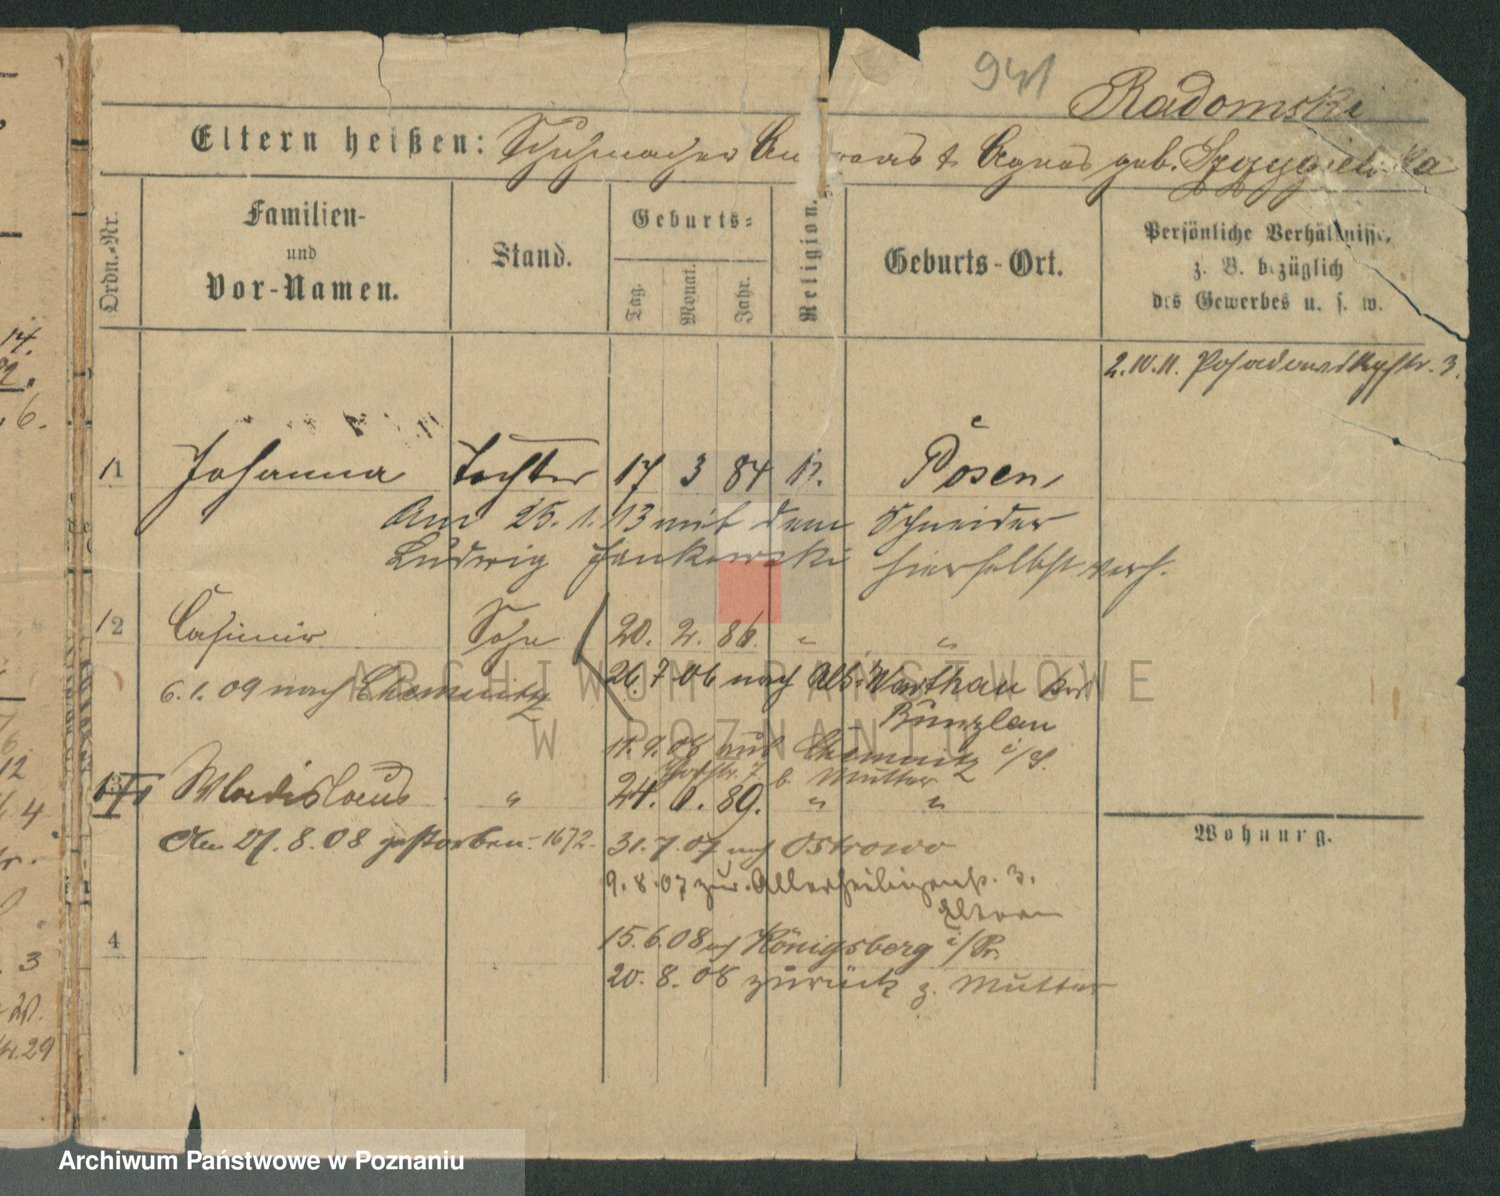 941
Radomski
Eltern heißen: Schuhmacher Andreas & Agnes geb.
Ordn.-Nr.
Familien-
und
Vor-Namen.
Stand.
Geburts-
Tag.
Monat.
Jahr.
Religion.
Geburts-Ort.
Persönliche Verhältnisse,
z. B. bezüglich
des Gewerbes u. s. w.
2.10.11. Posadowskystr. 3.
1 Johanna Tochter 17 3 84 k. Posen,
Am 25. 1. 13 mit dem Schneider
Ludwig Jankowski hierselbst verh.
2 Casimir Sohn 20. 2. 86. " "
6.1.09 nach Chemnitz
26.7.06 nach Alt-Warthau Krs
Bunzlau
11.9.08 aus Chemnitz i/S.
b. Mutter
3 Wladislaus " 24. 6. 89. " "
Am 27.8.08 gestorben - 1672.
31.7.07 nach Ostrowo
9.8.07 zur. Allerheiligenstr. 3.
Eltern
4
15.6.08 nch Königsberg i/Pr.
20.8.08 zurück z. Mutter
Wohnung.
ARCHIWUM PAŃSTWOWE
W POZNANIU
Archiwum Państwowe w Poznaniu